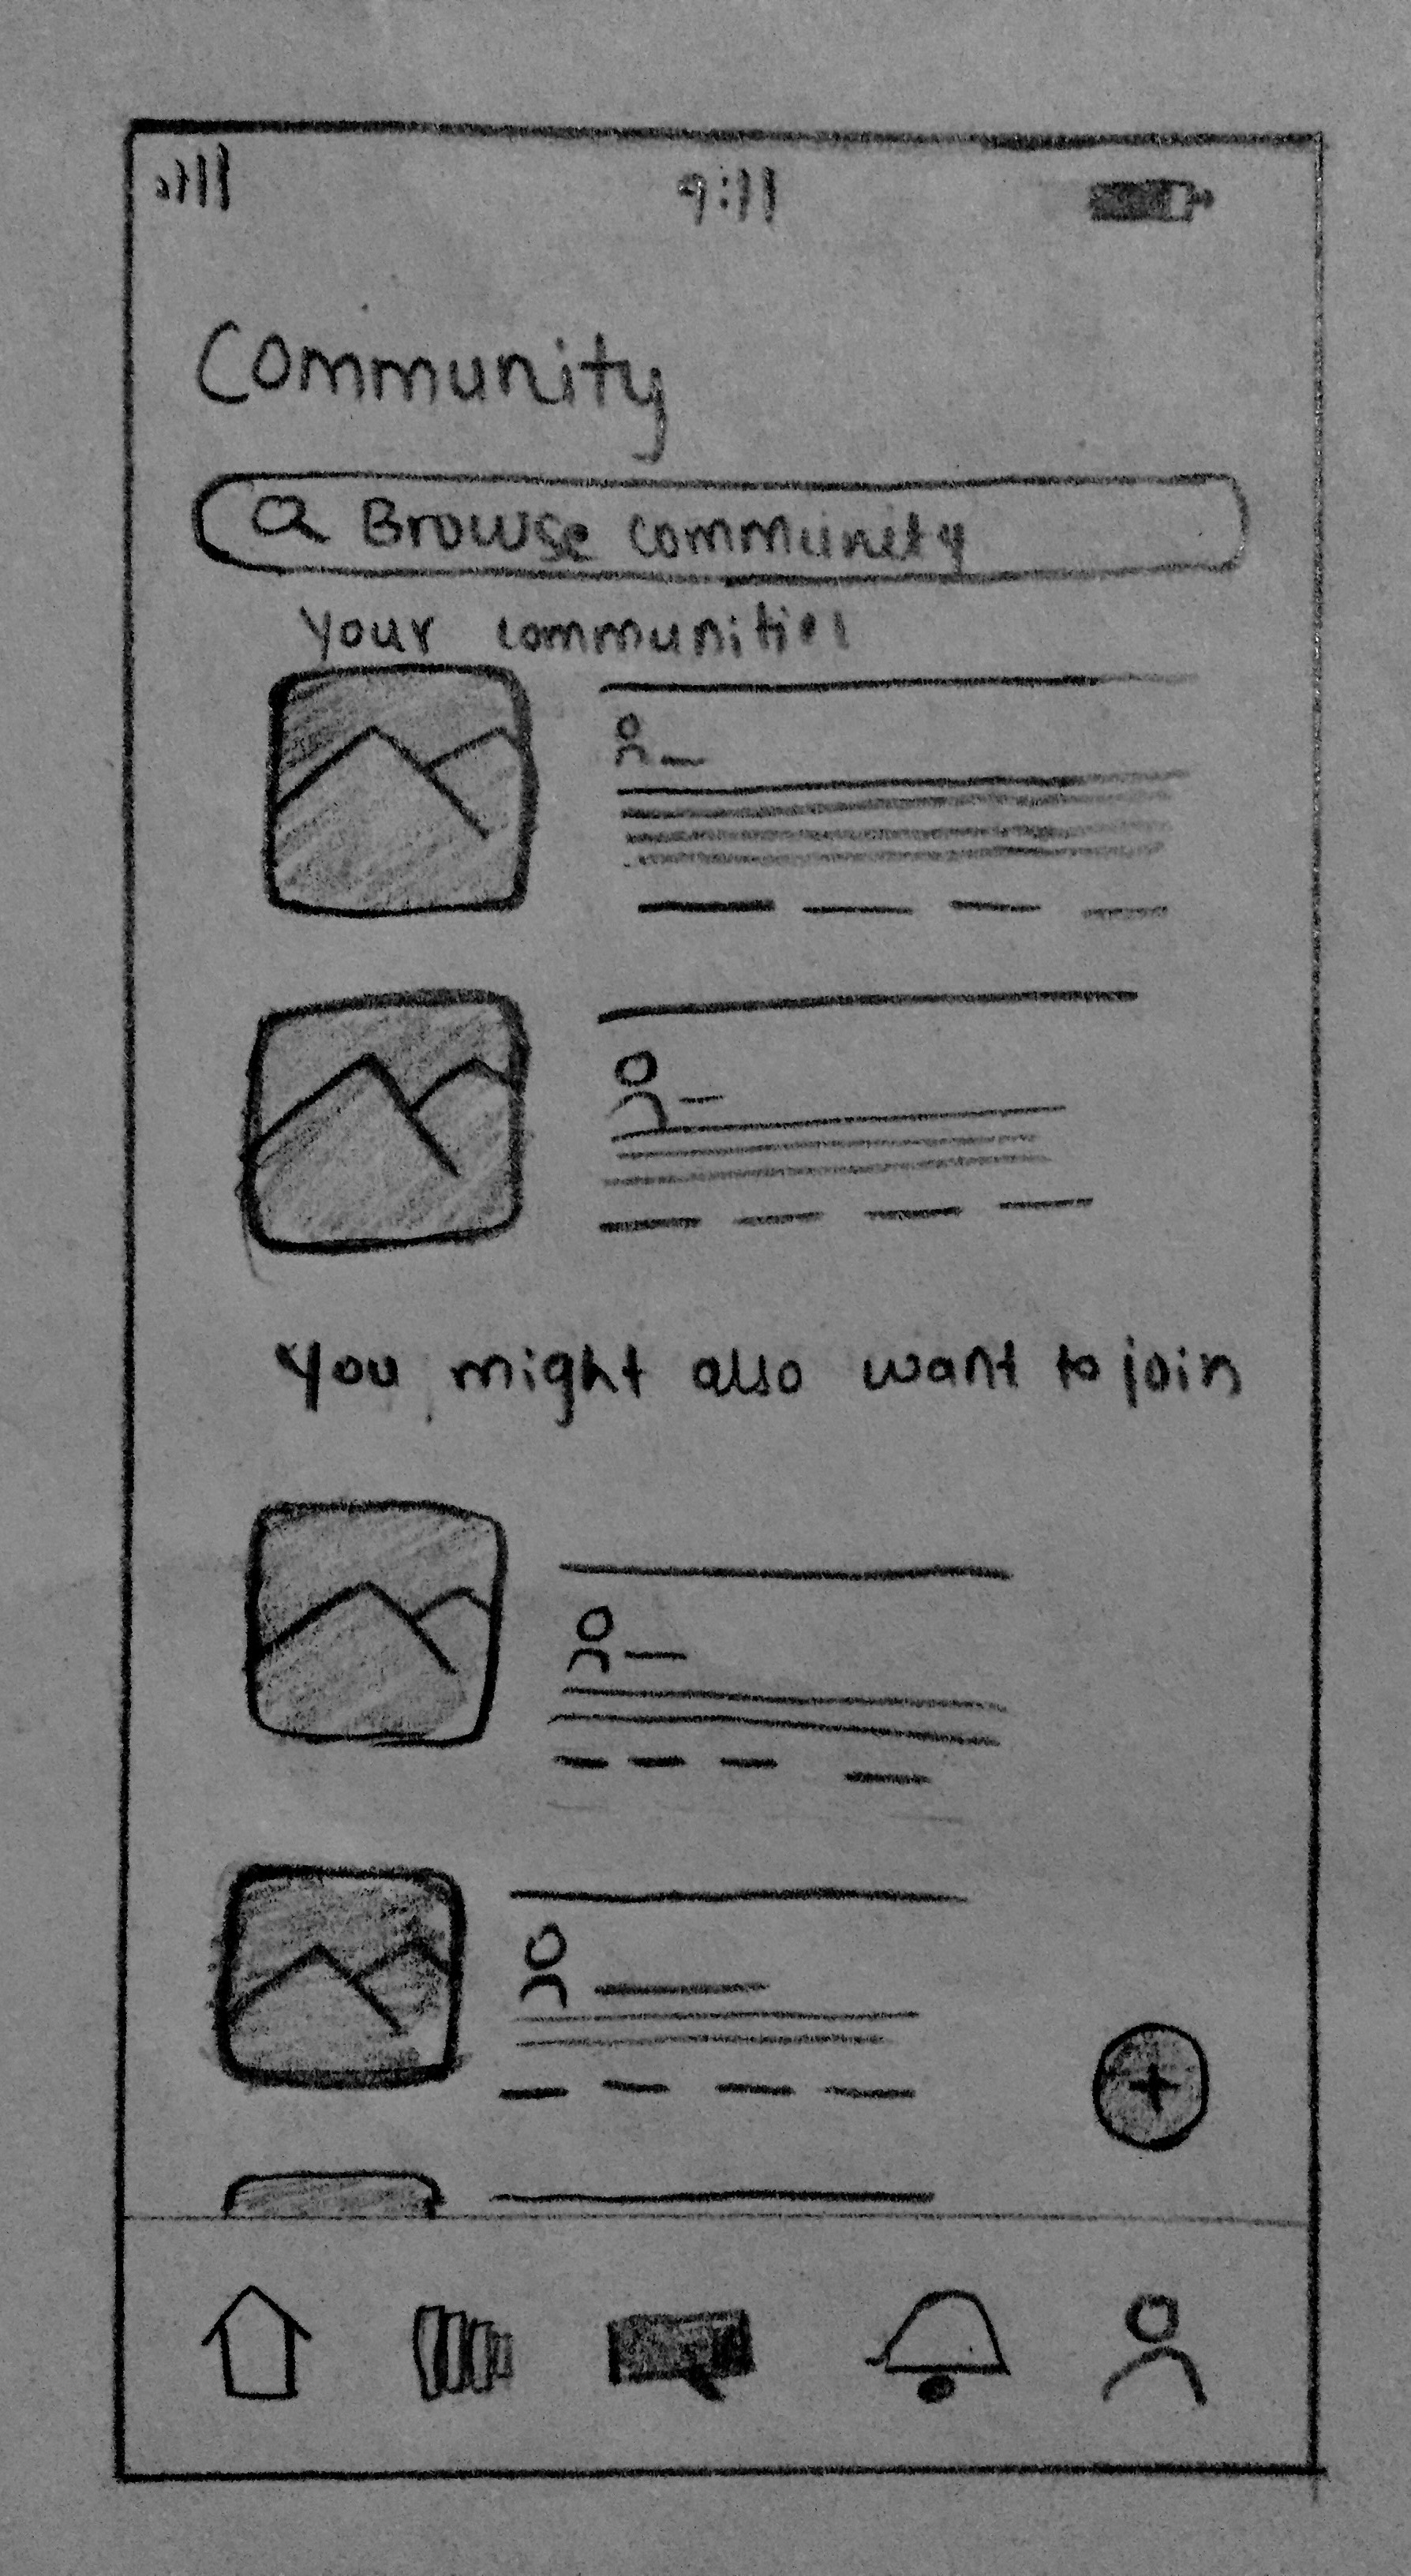 9:11
Community
Browse community
Your communities
You might also want to join